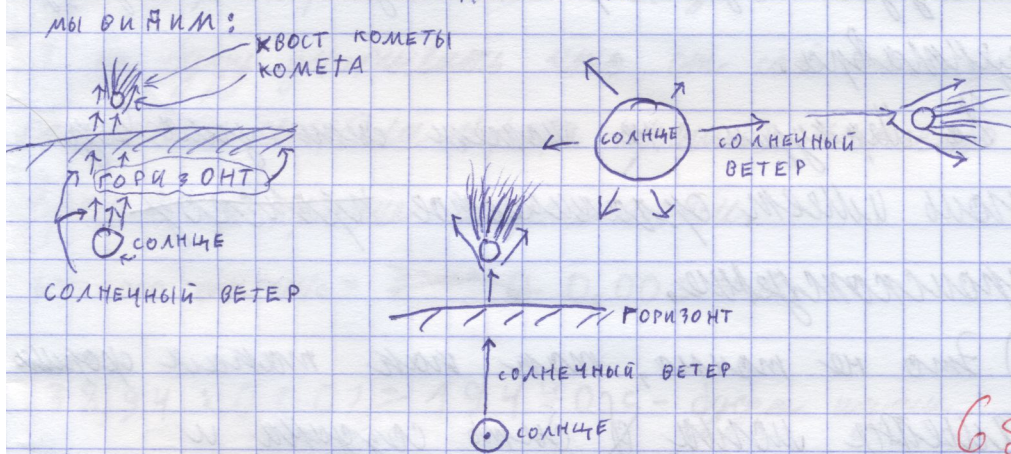 мы видим:
ХВОСТ КОМЕТЫ
КОМЕТА
ГОРИЗОНТ
СОЛНЦЕ
СОЛНЕЧНЫЙ ВЕТЕР
СОЛНЦЕ
СОЛНЕЧНЫЙ
ВЕТЕР
ГОРИЗОНТ
СОЛНЕЧНЫЙ ВЕТЕР
СОЛНЦЕ